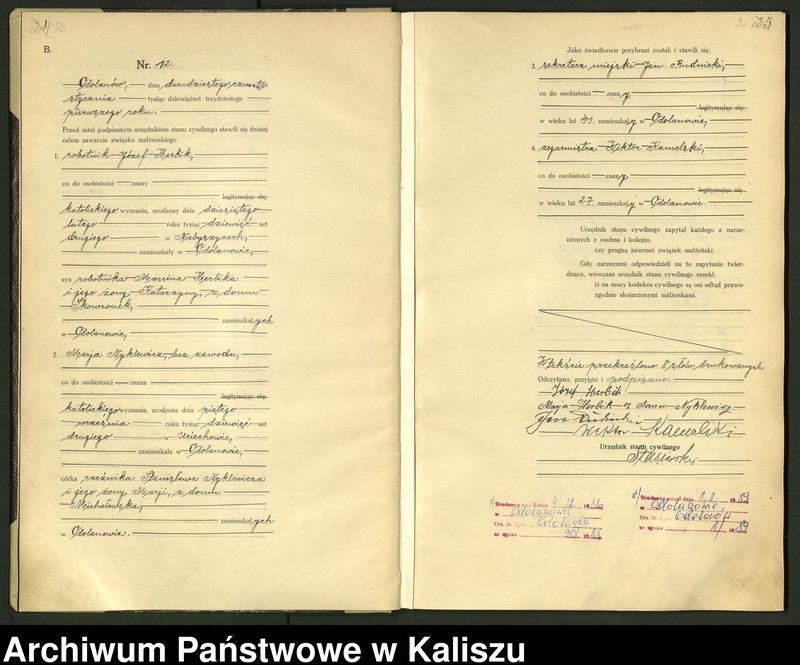 B.
Nr. 12
Odolanów, dnia dwudziestego czwartego
stycznia tysiąc dziewięćset trzydziestego
pierwszego roku.
Przed niżej podpisanym urzędnikiem stanu cywilnego stawili się dzisiaj
celem zawarcia związku małżeńskiego:
1. robotnik Józef Herbik,
co do osobistości znany
legitymując się
katolickiego wyznania, urodzony dnia dziesiątego
lutego roku tysiąc dziewięć set
drugiego w Nabyszycach,
zamieszkały w Odolanowie,
syn robotnika Marcina Herbika
i jego żony Katarzyny, z domu
Skowronek,
zamieszkałych
w Odolanowie,
2. Marja Nyklewicz, bez zawodu,
co do osobistości znana
legitymując się
katolickiego wyznania, urodzona dnia piątego
września roku tysiąc dziewięć set
drugiego w Uciechowie,
zamieszkała w Odolanowie,
córka rzeźnika Stanisława Nyklewicza
i jego żony Marji, z domu
Michałowska,
zamieszkałych
w Odolanowie.
25
Jako świadkowie przybrani zostali i stawili się:
3. sekretarz miejski Jan Rudnicki,
co do osobistości znany
legitymując się
w wieku lat 41. zamieszkały w Odolanowie,
4. zegarmistrz Wiktor Kamelski,
co do osobistości znany
legitymując się
w wieku lat 27. zamieszkały w Odolanowie.
Urzędnik stanu cywilnego zapytał każdego z narze-
czonych z osobna i kolejno,
czy pragną zawrzeć związek małżeński.
Gdy narzeczeni odpowiedzieli na to zapytanie twier-
dząco, wówczas urzędnik stanu cywilnego orzekł,
iż na mocy kodeksu cywilnego są oni odtąd prawo-
zgodnie skojarzonymi małżonkami.
W tekście przekreślono 8 słów drukowanych
Odczytano, przyjęto i podpisano:
Józef Herbik
Marja Herbik z domu Nyklewicz
Jan Rudnicki
Wiktor Kamelski
Urzędnik stanu cywilnego
w Odolanowie
Urz. St. Cyw. Odolanów
w Odolanowie,
Urz. St. Cyw. Odolanów
Archiwum Państwowe w Kaliszu